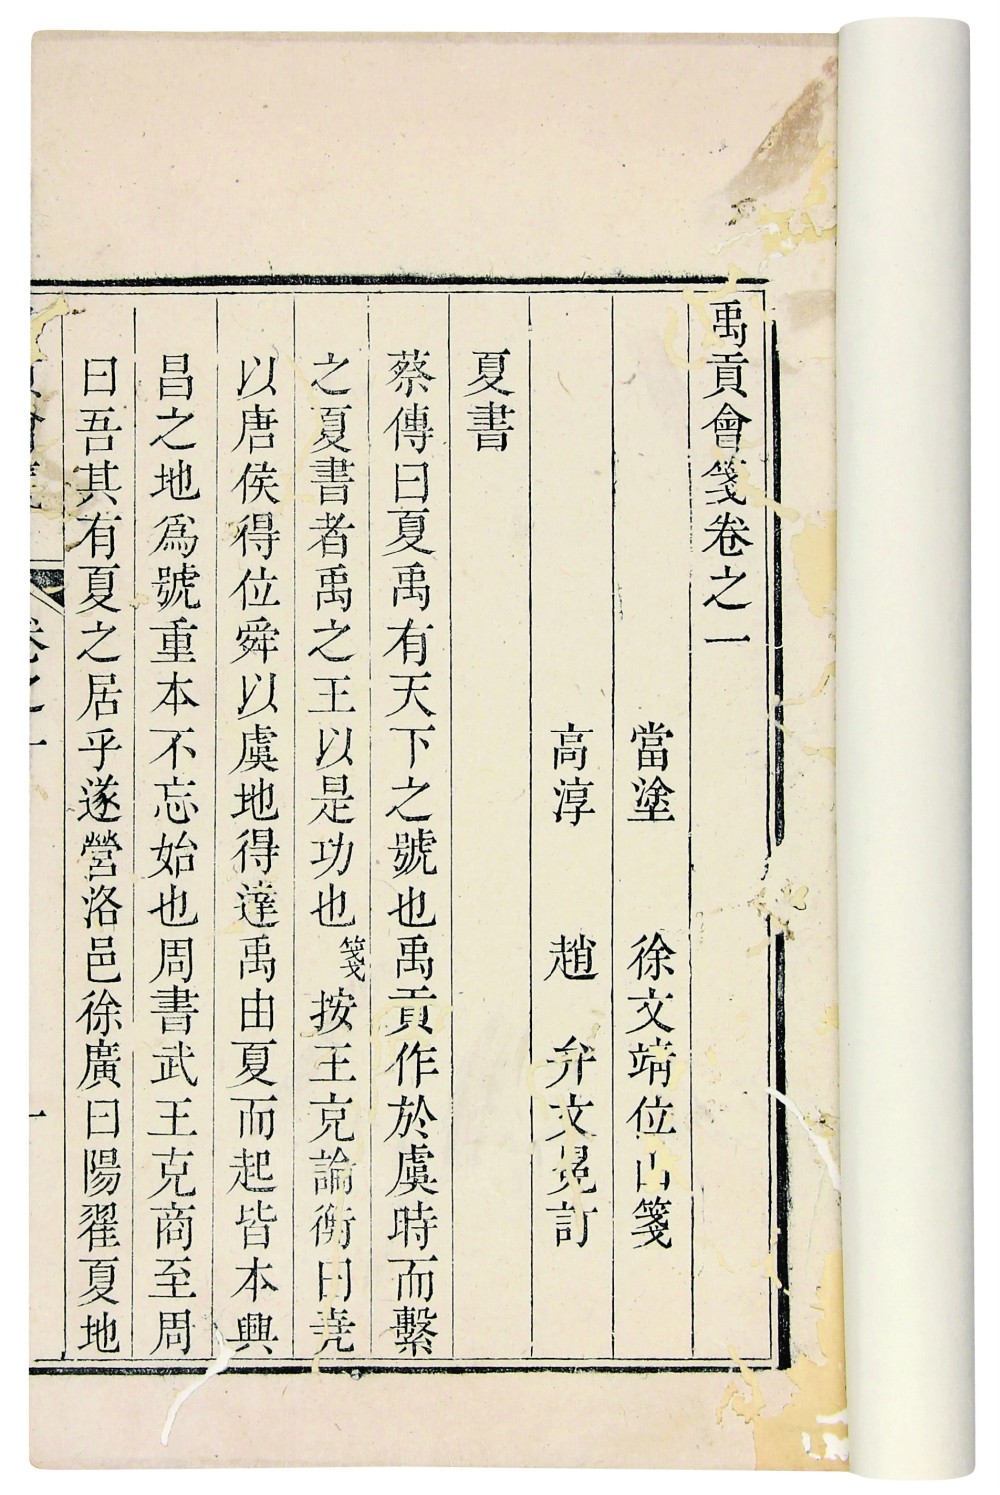 禹貢會箋卷之一
當塗 徐文靖位山箋
高淳 趙 弁文冕訂
夏書
蔡傳曰夏禹有天下之號也禹貢作於虞時而繫
之夏書者禹之王以是功也箋按王充論衡曰堯
以唐侯得位舜以虞地得達禹由夏而起皆本興
昌之地為號重本不忘始也周書武王克商至周
曰吾其有夏之居乎遂營洛邑徐廣曰陽翟夏地
卷之一
一